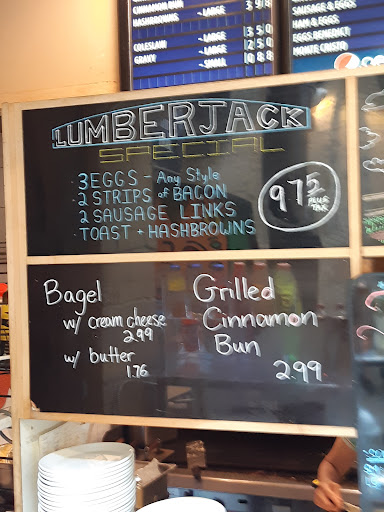 CINNAMON BUN
HASHBROWNS - LARGE
COLESLAW - LARGE 350
GRAVY - SMALL
SAUSAGE & EGGS
HAM & EGGS
EGGS BENEDICT
MONTE CRISTO
LUMBERJACK
SPECIAL
3 EGGS - Any Style
2 STRIPS of BACON
2 SAUSAGE LINKS
TOAST + HASHBROWNS
975 PLUS TAX
Bagel
w/ cream cheese
2.99
w/ butter
1.76
Grilled
Cinnamon
Bun
2.99